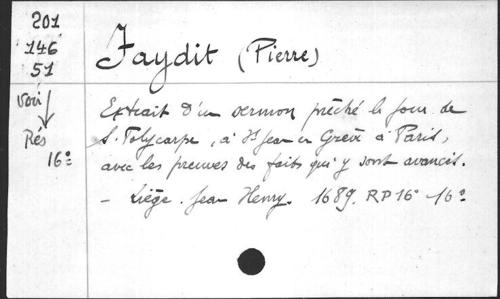 201
146
51
voir
Rés
16º
Faydit (Pierre)
Extrait d'un sermon prêché le jour de
S. Polycarpe, à St Jean en Grève à Paris,
avec les preuves des faits qui y sont avancés.
- Liège. Jean Henry. 1689. RP 16º - 16º